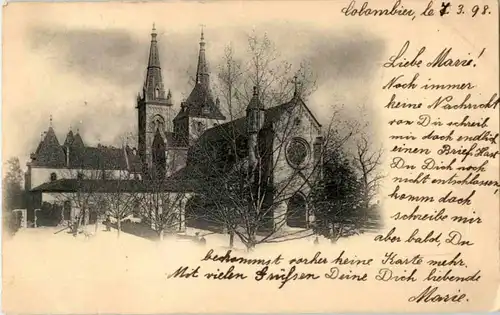 Colombier, le 7. 3. 98.
Liebe Marie!
Noch immer
keine Nachricht
von Dir schreib
mir doch endlich
einen Brief. Hast
Du Dich noch
nicht entschlossen
komm doch
schreibe mir
aber bald, Du
bekommst vorher keine Karte mehr.
Mit vielen Grüssen Deine Dich liebende
Marie.